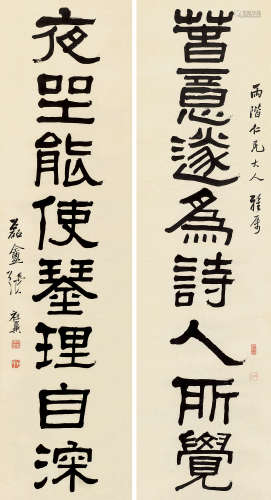 春意遂為詩人所覺
階仁兄大人雅屬
夜坐能使琴理自深
磊盦張祖翼